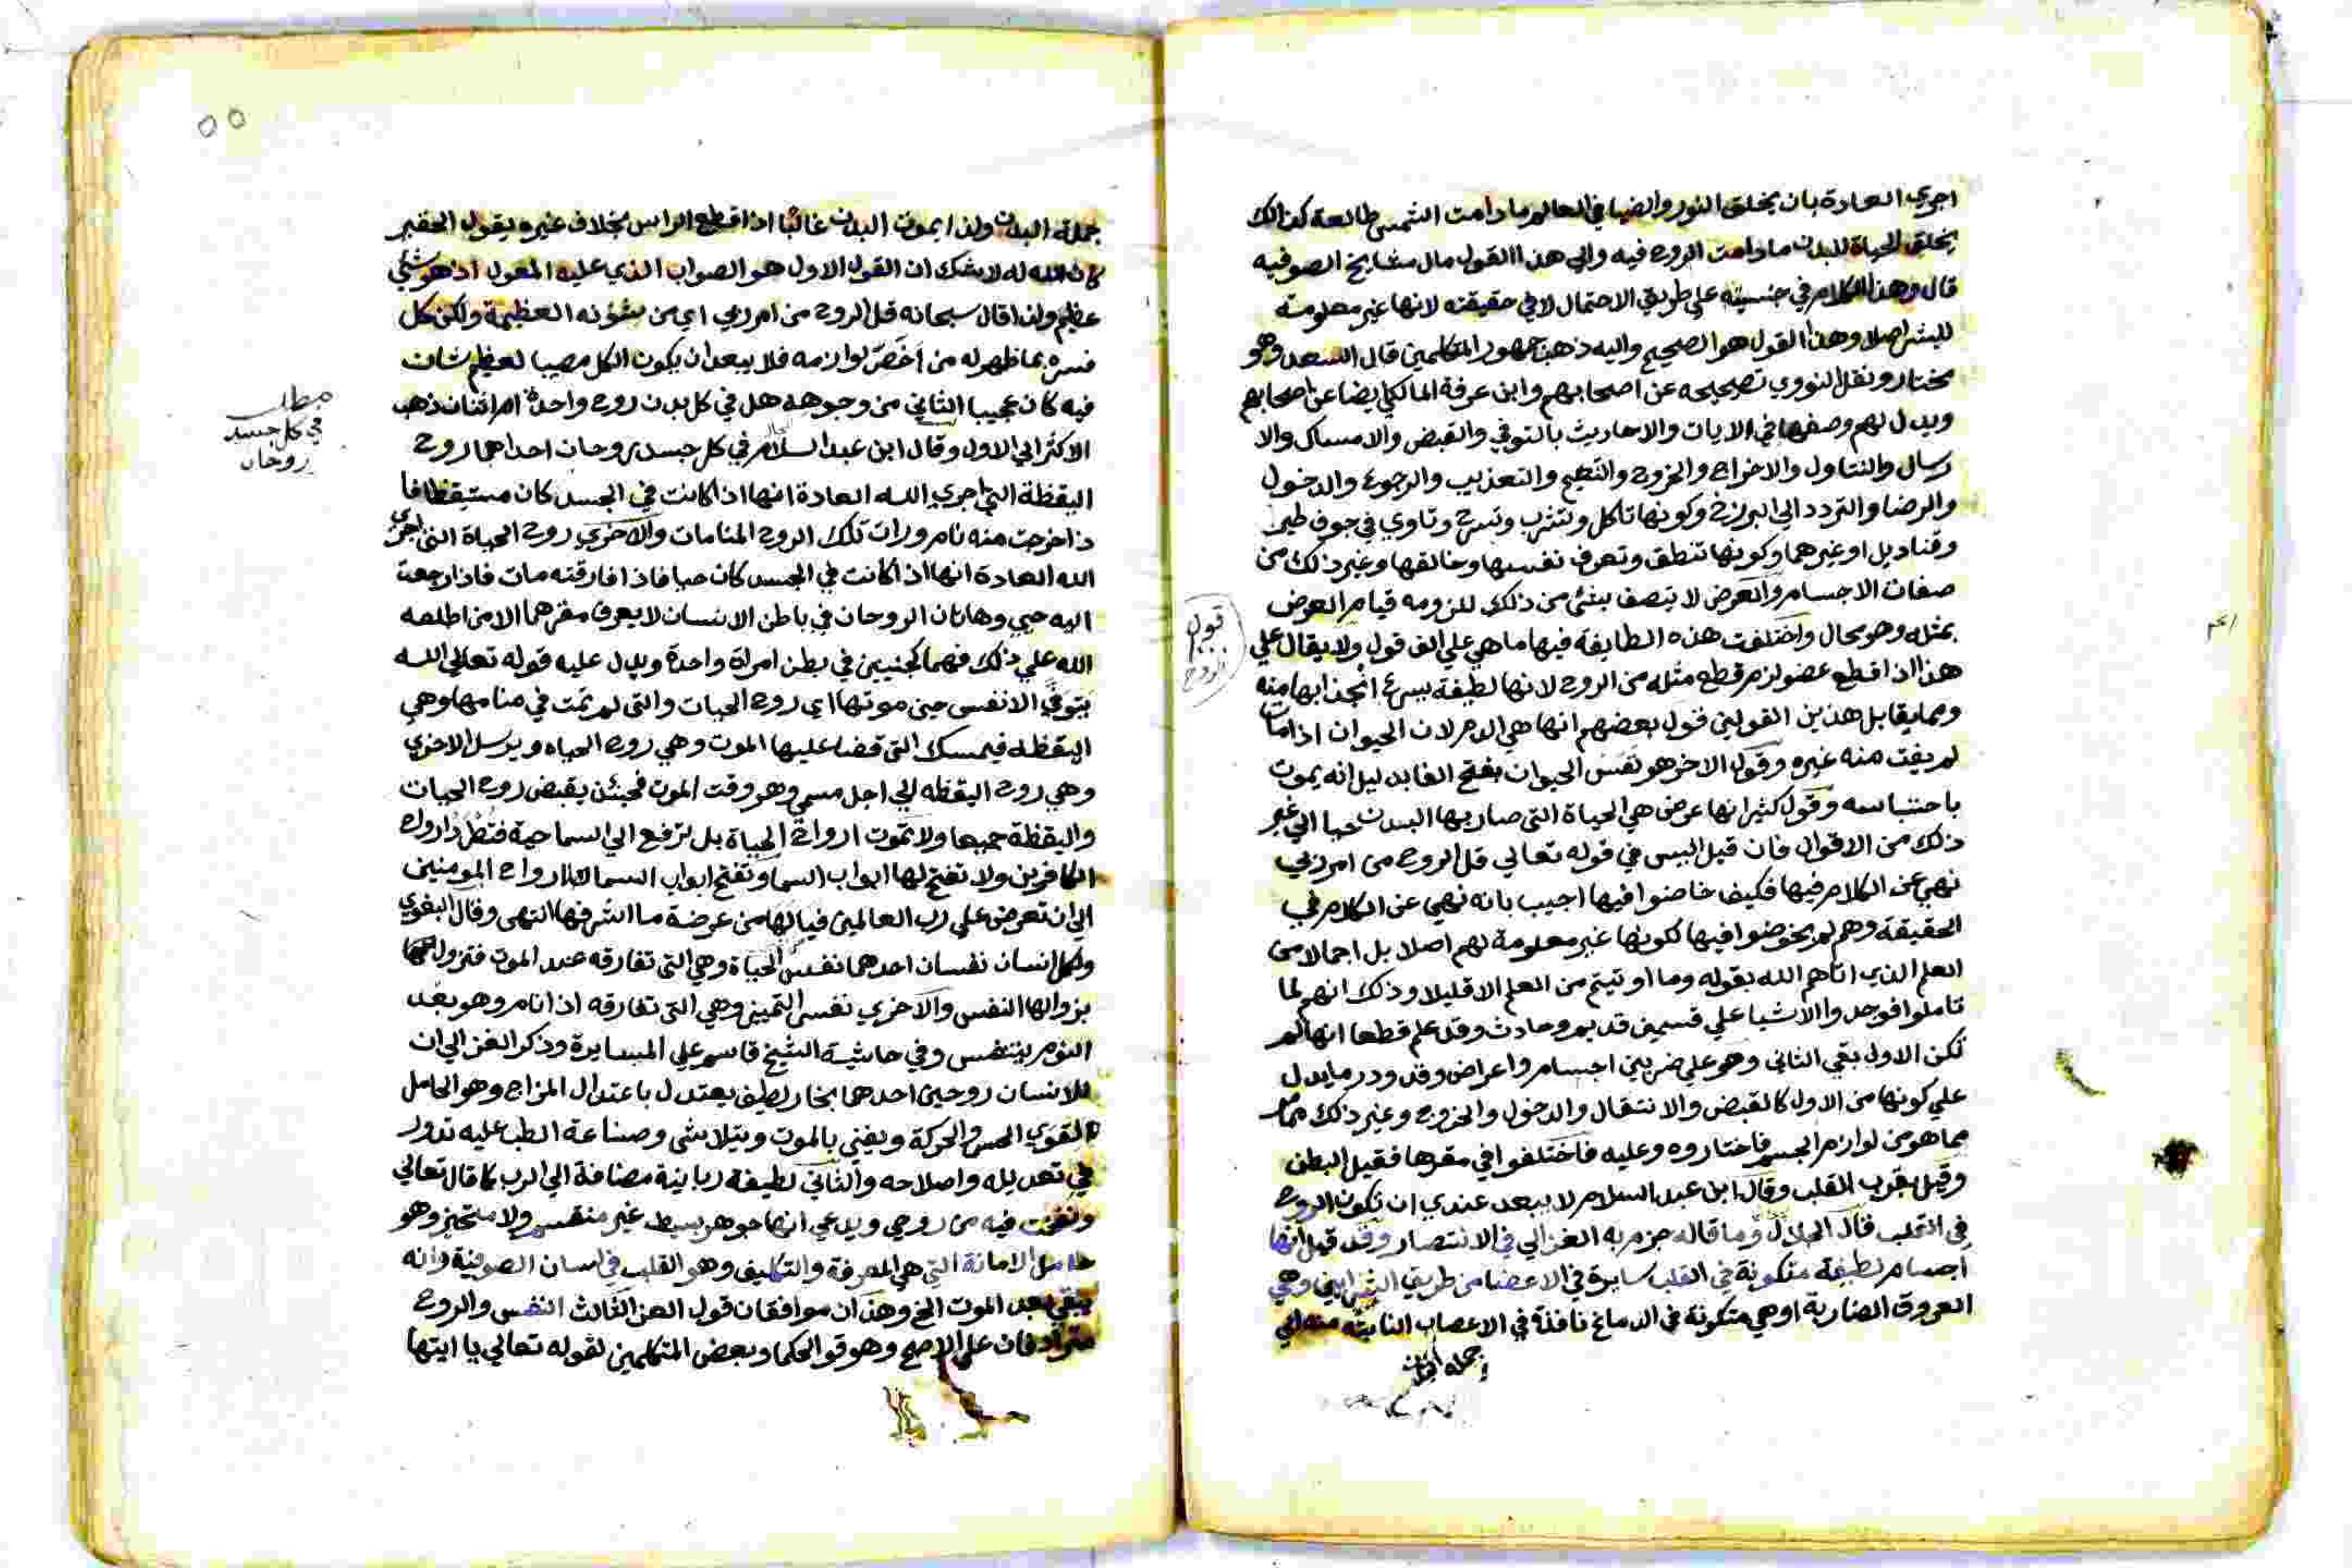 اجري العادة بان يخلق النور والضيا في العالم ما دامت الشمس طالعة كذالك
يخلق الحياة للبدن ما دامت الروح فيه والي هذا القول مال مشايخ الصوفيه
قال وهذا الكلام في جنسيته علي طريق الاحتمال لا في حقيقته لانها غير معلومة
للبشر اصلا وهذا القول هو الصحيح واليه ذهب جمهور المتكلمين قال السعد وهو
مختار ونقل النووي تصحيحه عن اصحابهم وابن عرفة المالكي ايضا عن اصحابهم
ويدل لهم وصفها في الايات والاحاديث بالتوفي والقبض والامساك والا
رسال والتناول والاخراج والخروج والتنعيم والتعذيب والرجوع والدخول
والرضا والتردد الي البرزخ وكونها تاكل وتشرب وتسرح وتاوي في جوف طير
وقناديل او غيرهما وكونها تنطق وتعرف نفسها وخالقها وغير ذلك من
صفات الاجسام والعرض لا يتصف بشئ من ذلك للزومه قيام العرض
بمثله وهو محال واختلفت هذه الطايفة فيها ما هي علي الف قول ولا يقال علي
هذا اذا قطع عضو لزم قطع مثله من الروح لانها لطيفة يسرع انجذابها منه
ومما يقابل هذين القولين قول بعضهم انها هي الدم لان الحيوان اذا مات
لم يفت منه غيره وقول الاخر هو نفس الحيوان بفتح الفا بدليل انه يموت
باحتباسه وقول كثير انها عرض هي الحياة التي صار بها البدن حيا الي غير
ذلك من الاقوال فان قيل اليس في قوله تعالي قل الروح من امر ربي
نهي عن الكلام فيها فكيف خاضوا فيها اجيب بانه نهي عن الكلام في
الحقيقة وهم لم يخوضوا فيها لكونها غير معلومة لهم اصلا بل اجمالا من
العلم الذي اتاهم الله بقوله وما اوتيتم من العلم الا قليلا وذلك انهم لما
تاملوا فوجدوا الاشيا علي قسمين قديم وحادث وقد علم قطعا انها لم
تكن الاول بقي الثاني وهو علي ضربين اجسام واعراض وقد ورد ما يدل
علي كونها من الاول كالقبض والانتقال والدخول والخروج وغير ذلك مما
مما هو من لوازم الجسم فاختاروه وعليه فاختلفوا في مقرها فقيل البطن
وقيل بقرب القلب وقال ابن عبد السلام لا يبعد عندي ان تكون الروح
في القلب قال الجلال وما قاله جزم به الغزالي في الانتصار وقد قيل انها
اجسام لطيفة متكونة في القلب سايرة في الاعضا من طريق الشرايين وهي
العروق الضاربة او هي متكونة في الدماغ نافذة في الاعصاب النابتة منه الي
جملة البدن
قبول
الروح
٥٥
جملة البدن ولذا يموت البدن غالبا اذا قطع الراس بخلاف غيره يقول الحقير
كان الله له لا شك ان القول الاول هو الصواب الذي عليه المعول اذ هو شئ
عظيم ولذا قال سبحانه قل الروح من امر ربي اي من شؤنه العظيمة ولكن كل
فسره بما ظهر له من اخص لوازمه فلا يبعد ان يكون الكل مصيبا لعظيم شان
فيه كان عجيبا الثاني من وجوهه هل في كل بدن روح واحدة ام اثنان ذهب
الاكثر الي الاول وقال ابن عبد السلام في كل جسد روحان احداهما روح
اليقظة التي اجري الله العادة انها اذا كانت في الجسد كان مستيقظا فا
ذا خرجت منه نام ورات تلك الروح المنامات والاخري روح الحياة التي اجري
الله العادة انها اذا كانت في الجسد كان حيا فاذا فارقته مات فاذا رجعت
اليه حيي وهاتان الروحان في باطن الانسان لا يعرف مقرهما الا من اطلعه
الله علي ذلك فهما كجنيين في بطن امراة واحدة ويدل عليه قوله تعالي الله
يتوفي الانفس حين موتها اي روح الحيات والتي لم تمت في منامها وهي
اليقظه فيمسك التي قضا عليها الموت وهي روح الحياه ويرسل الاخري
وهي روح اليقظه الي اجل مسمي وهو وقت الموت فحينئن يقبض روح الحيات
واليقظة جميعا ولا تموت ارواح الحياة بل ترفع الي السما حية فتطرد ارواح
الكافرين ولا تفتح لها ابواب السما وتفتح ابواب السما لارواح المومنين
الي ان تعرض علي رب العالمين فيالها من عرضة ما اشرفها انتهي وقال البغوي
ولكل انسان نفسان احدهما نفس الحياة وهي التي تفارقه عند الموت فتزول
بزوالها النفس والاخري نفس التمييز وهي التي تفارقه اذا نام وهو بعد
النوم يتنفس وفي حاشية الشيخ قاسم علي المسايرة وذكر الغزالي ان
للانسان روحين احدهما بخار لطيف يعتدل باعتدال المزاج وهو الحامل
لقوي الحس والحركة ويفني بالموت ويتلاشي وصناعة الطب عليه تدور
في تعديله واصلاحه والثاني لطيفة ربانية مضافة الي الرب كما قال تعالي
ونفخت فيه من روحي ويدعي انها جوهر بسيط غير منقسم ولا متحيز وهو
حامل الامانة التي هي المعرفة والتكليف وهو القلب في لسان الصوفية وانه
يبقي بعد الموت الخ وهذان موافقان قول العز الثالث النفس والروح
مترادفان علي الاصح وهو قول الحكما وبعض المتكلمين لقوله تعالي يا ايتها
مطلب
في كل جسد
روحان